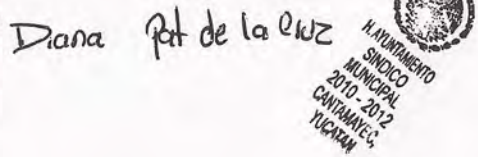 Diana Pat de la Cruz
H. AYUNTAMIENTO
SINDICO
MUNICIPAL
2010 - 2012
CANTAMAYEC,
YUCATAN